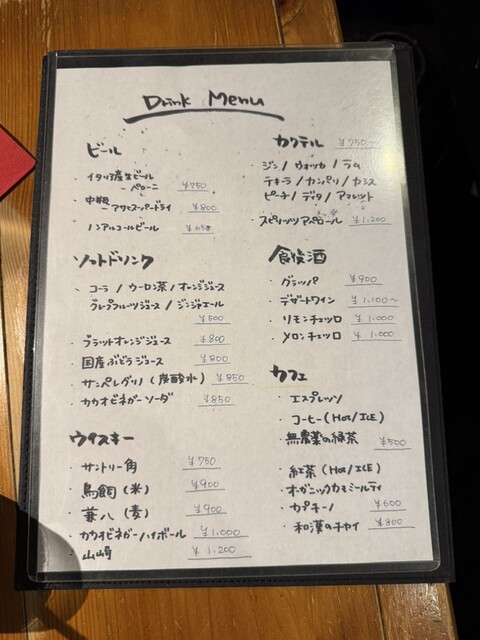 Drink Menu
ビール
・イタリア産生ビール
ーペローニ ¥750
・中瓶
ーアサヒスーパードライ ¥800
・ノンアルコールビール ¥650
ソフトドリンク
・コーラ / ウーロン茶 / オレンジジュース
グレープフルーツジュース / ジンジャエール
¥500
・ブラッドオレンジジュース ¥800
・国産ぶどうジュース ¥800
・サンペレグリノ (炭酸水) ¥850
・カカオビネガーソーダ ¥850
ウイスキー
・サントリー角 ¥750
・鳥飼 (米) ¥900
・兼八 (麦) ¥900
・カカオビネガーハイボール ¥1.000
・山崎 ¥1.200
カクテル ¥750~
・ジン / ウォッカ / ラム
テキーラ / カンパリ / カシス
ピーチ / ディタ / アマレット
・スピリッツアペロール ¥1.200
食後酒
・グラッパ ¥900
・デザートワイン ¥1.100~
・リモンチェッロ ¥1.000
・メロンチェッロ ¥1.000
カフェ
・エスプレッソ
・コーヒー (Hot/ICE)
・無農薬の緑茶 ¥500
・紅茶 (Hot/ICE)
・オーガニックカモミールティ
・カプチーノ ¥600
・和漢のチャイ ¥800